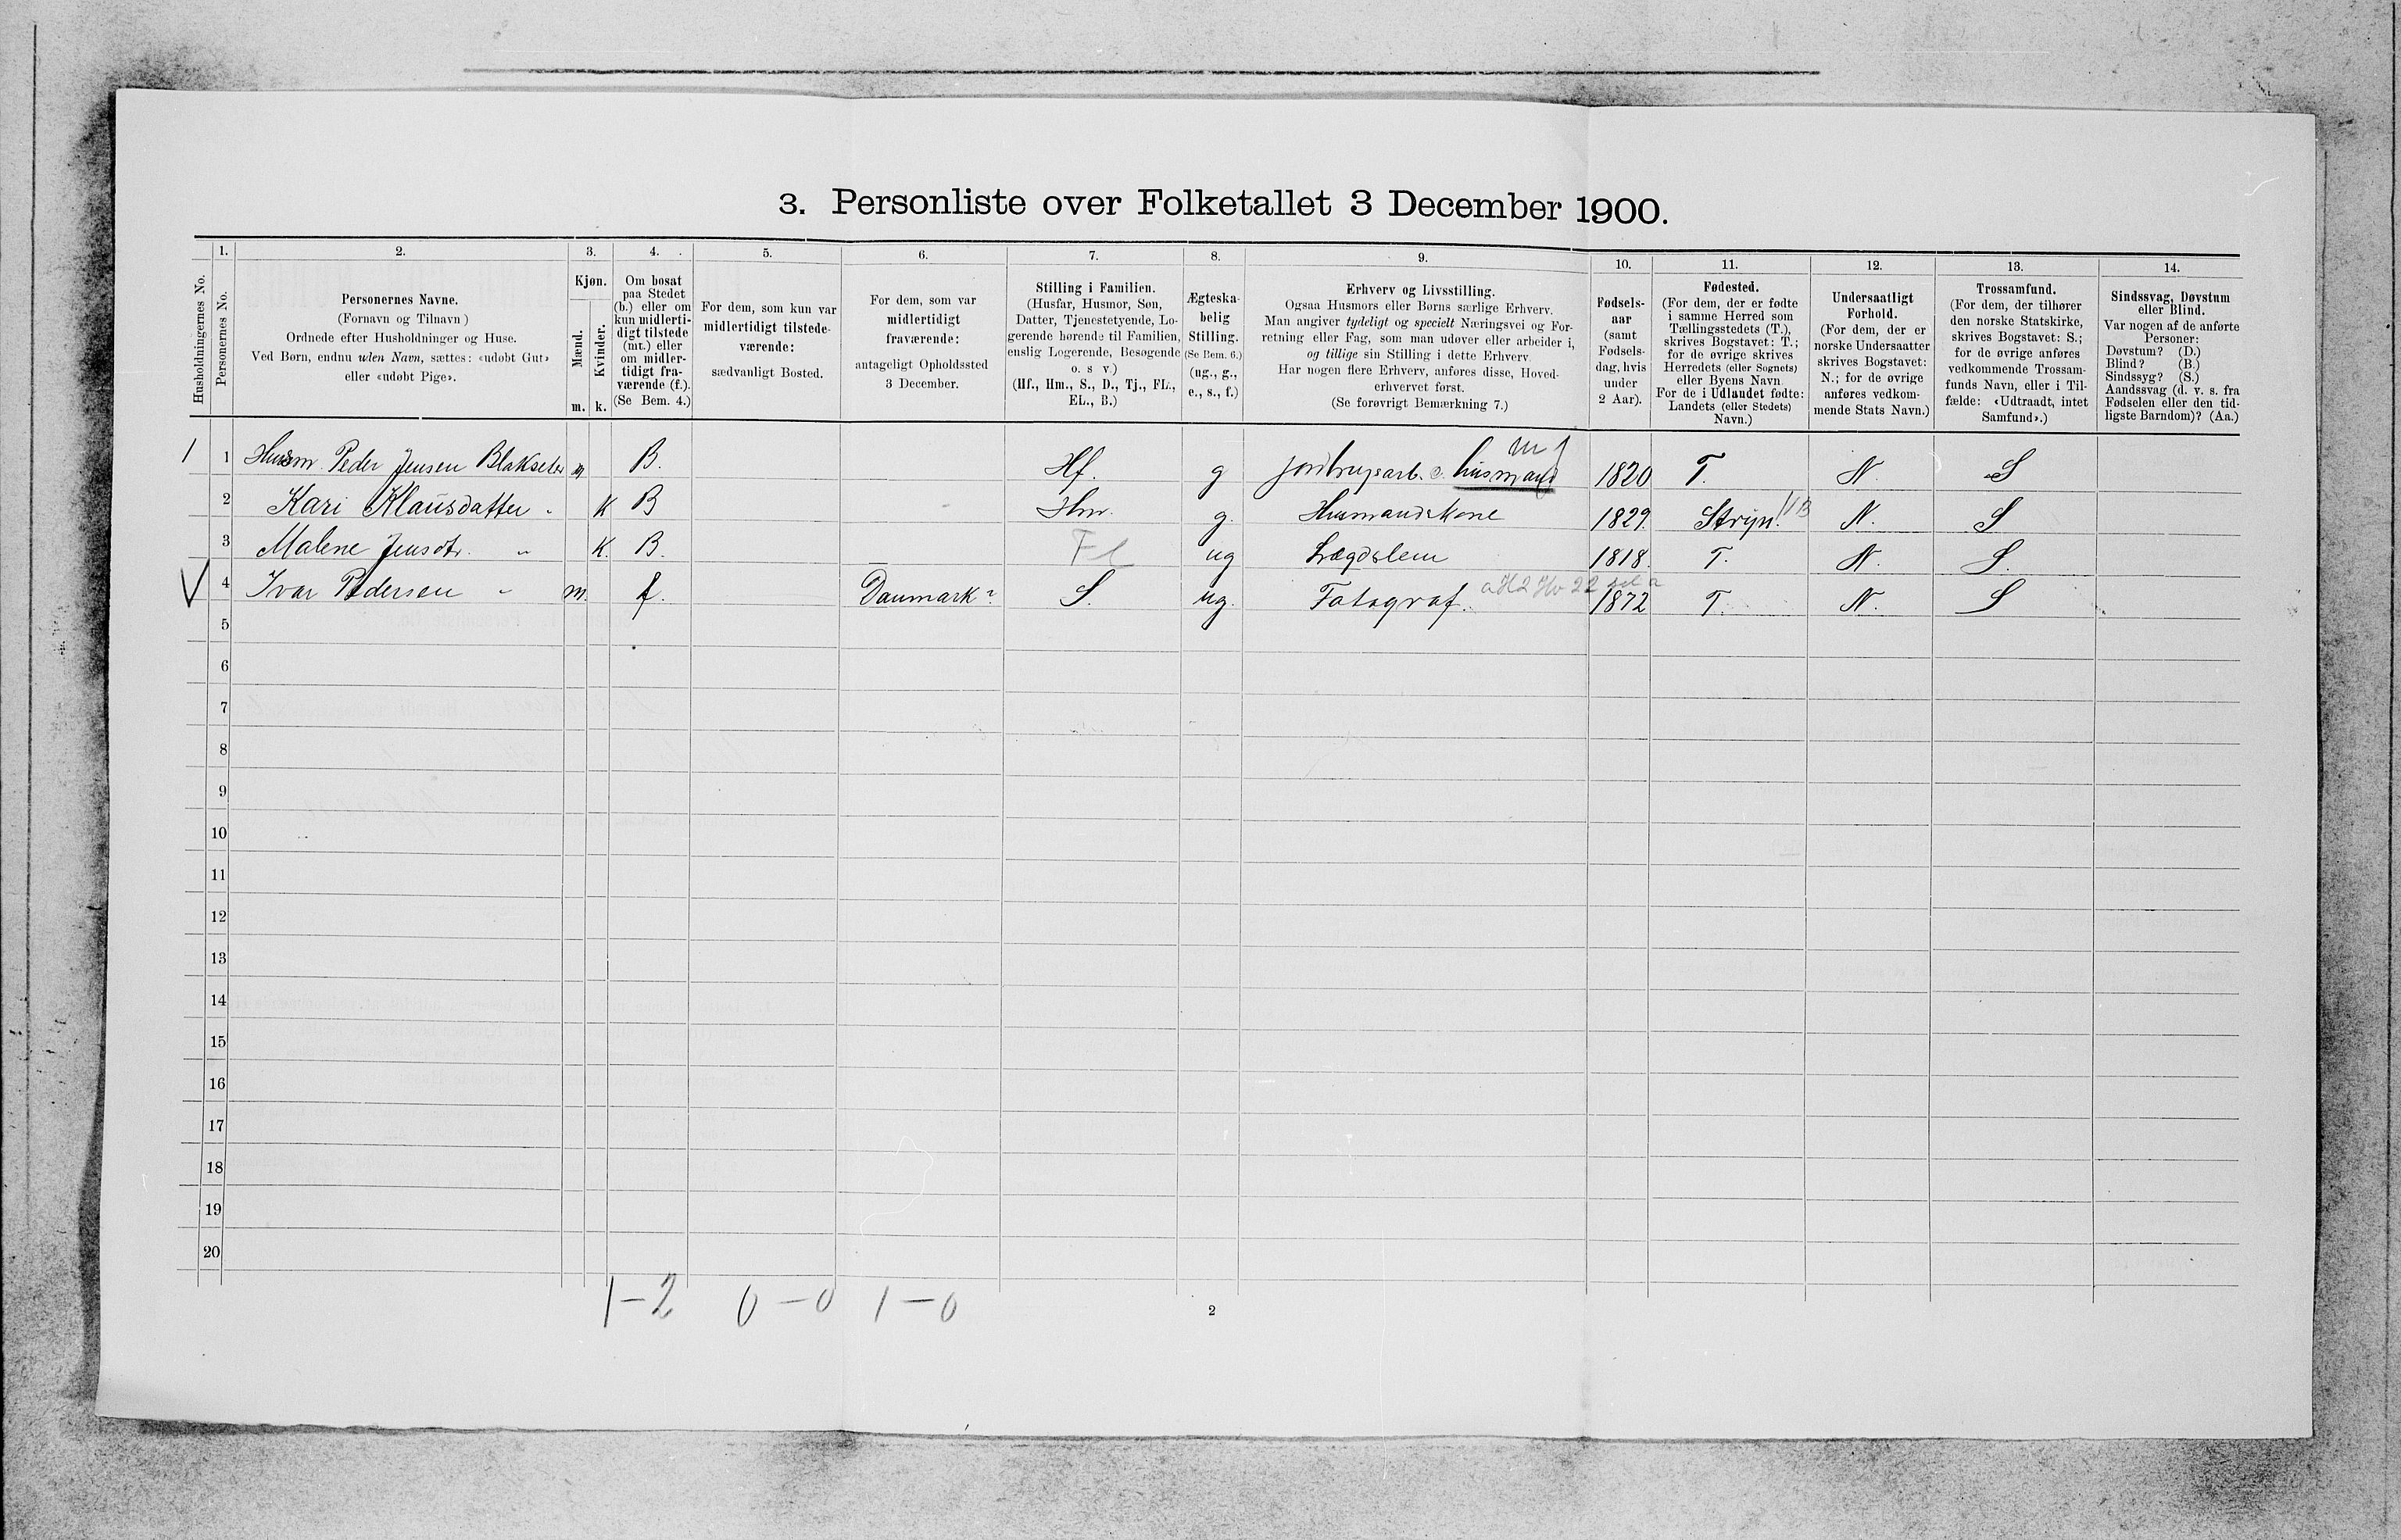 3. Personliste over Folketallet 3 December 1900.
Husholdningernes No.
1.
Personernes No.
2.
Personernes Navne.
(Fornavn og Tilnavn)
Ordnede efter Husholdninger og Huse.
Ved Børn, endnu uden Navn, sættes: «udøbt Gut»
eller «udøbt Pige».
3.
Kjøn.
Mænd.
Kvinder.
m.
k.
4.
Om bosat
paa Stedet
(b.) eller om
kun midlerti-
digt tilstede
(mt.) eller
om midler-
tidigt fra-
værende (f.).
(Se Bem. 4.)
5.
For dem, som kun var
midlertidigt tilstede-
værende:
sædvanligt Bosted.
6.
For dem, som var
midlertidigt
fraværende:
antageligt Opholdssted
3 December.
7.
Stilling i Familien.
(Husfar, Husmor, Søn,
Datter, Tjenestetyende, Lo-
gerende hørende til Familien,
enslig Logerende, Besøgende
o. s v.)
(Hf., Hm., S., D., Tj., FL.,
EL., B.)
8.
Ægteska-
belig
Stilling.
(Se Bem. 6.)
(ug., g.,
e., s., f.)
9.
Erhverv og Livsstilling.
Ogsaa Husmors eller Børns særlige Erhverv.
Man angiver tydeligt og specielt Næringsvei og For-
retning eller Fag, som man udøver eller arbeider i,
og tillige sin Stilling i dette Erhverv.
Har nogen flere Erhverv, anføres disse, Hoved-
erhvervet først.
(Se forøvrigt Bemærkning 7.)
10.
Fødsels-
aar
(samt
Fødsels-
dag, hvis
under
2 Aar).
11.
Fødested.
(For dem, der er fødte
i samme Herred som
Tællingsstedets (T.),
skrives Bogstavet: T.;
for de øvrige skrives
Herredets (eller Sognets)
eller Byens Navn.
For de i Udlandet fødte:
Landets (eller Stedets)
Navn.)
12.
Undersaatligt
Forhold.
(For dem, der er
norske Undersaatter
skrives Bogstavet:
N.; for de øvrige
anføres vedkom-
mende Stats Navn.)
13.
Trossamfund.
(For dem, der tilhører
den norske Statskirke,
skrives Bogstavet: S.;
for de øvrige anføres
vedkommende Trossam-
funds Navn, eller i Til-
fælde: «Udtraadt, intet
Samfund».)
14.
Sindssvag, Døvstum
eller Blind.
Var nogen af de anførte
Personer:
Døvstum? (D.)
Blind? (B.)
Sindssyg? (S.)
Aandssvag (d. v. s. fra
Fødselen eller den tid-
ligste Barndom)? (Aa.)
1 1 Husm Peder Jensen Blakseter m B. Hf. g jordbrugsarb. husmand 1820 T. N. S
2 Kari Klausdatter " k B Hm. g. Husmandskone 1829. Stryn. N. S
3 Malene Jensdtr. " k. B. Fl ug Lægdslem 1818. T. N. S.
4 Ivar Pedersen " m. f. Danmark? S. ug. Fotograf. 1872 T. N. S
5
6
7
8
9
10
11
12
13
14
15
16
17
18
19
20
1-2 0-0 1-0
2